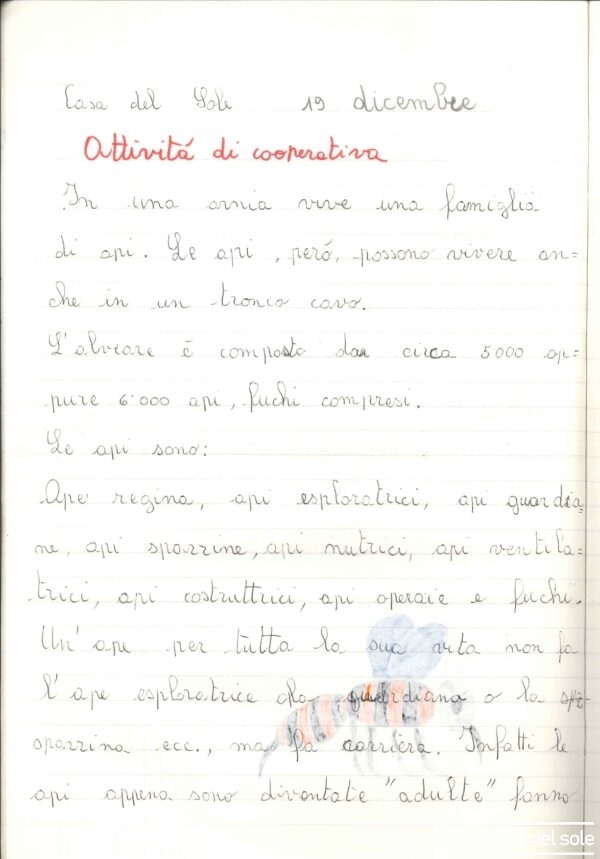 Casa del Sole 19 dicembre
Attività di cooperativa
In una arnia vive una famiglia
di api. Le api, però, possono vivere an=
che in un tronco cavo.
L'alveare è composto da circa 5000 op=
pure 6000 api, fuchi compresi.
Le api sono:
Ape regina, api esploratrici, api guardia=
ne, api spazzine, api nutrici, api ventila=
trici, api costruttrici, api operaie e fuchi.
Un' ape per tutta la sua vita non fa
l' ape esploratrice o la guardiana o la
spazzina ecc., ma fa carriera. Infatti le
api appena sono diventate "adulte" fanno
del sole